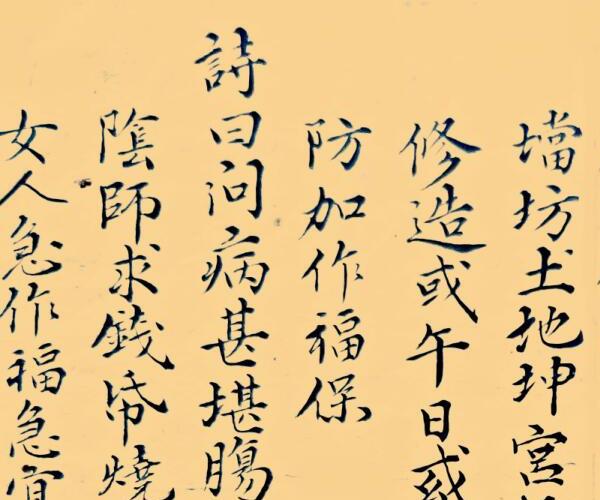 壋坊土地坤宮
修造或午日或
防加作福保
詩曰问病甚堪腸
陰師求錢帋燒
女人急作福急宜